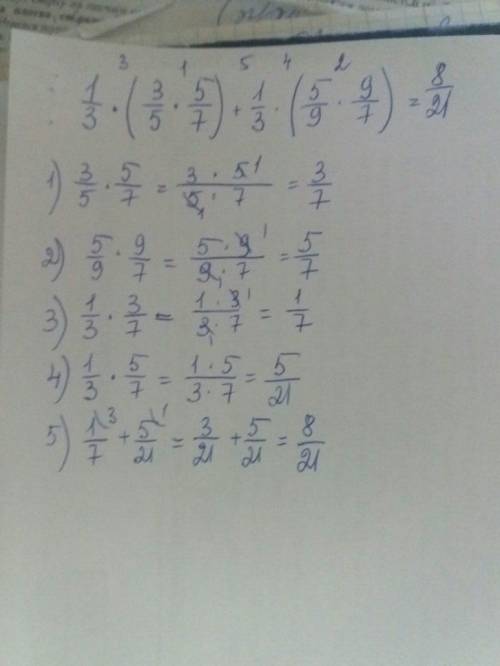 3 1 5 4 2
1/3 · (3/5 · 5/7) + 1/3 · (5/9 · 9/7) = 8/21
1) 3/5 · 5/7 = 3 · 5¹/5₁ · 7 = 3/7
2) 5/9 · 9/7 = 5 · 9¹/9₁ · 7 = 5/7
3) 1/3 · 3/7 = 1 · 3¹/3₁ · 7 = 1/7
4) 1/3 · 5/7 = 1 · 5/3 · 7 = 5/21
5) 1/7\³ + 5/21\¹ = 3/21 + 5/21 = 8/21